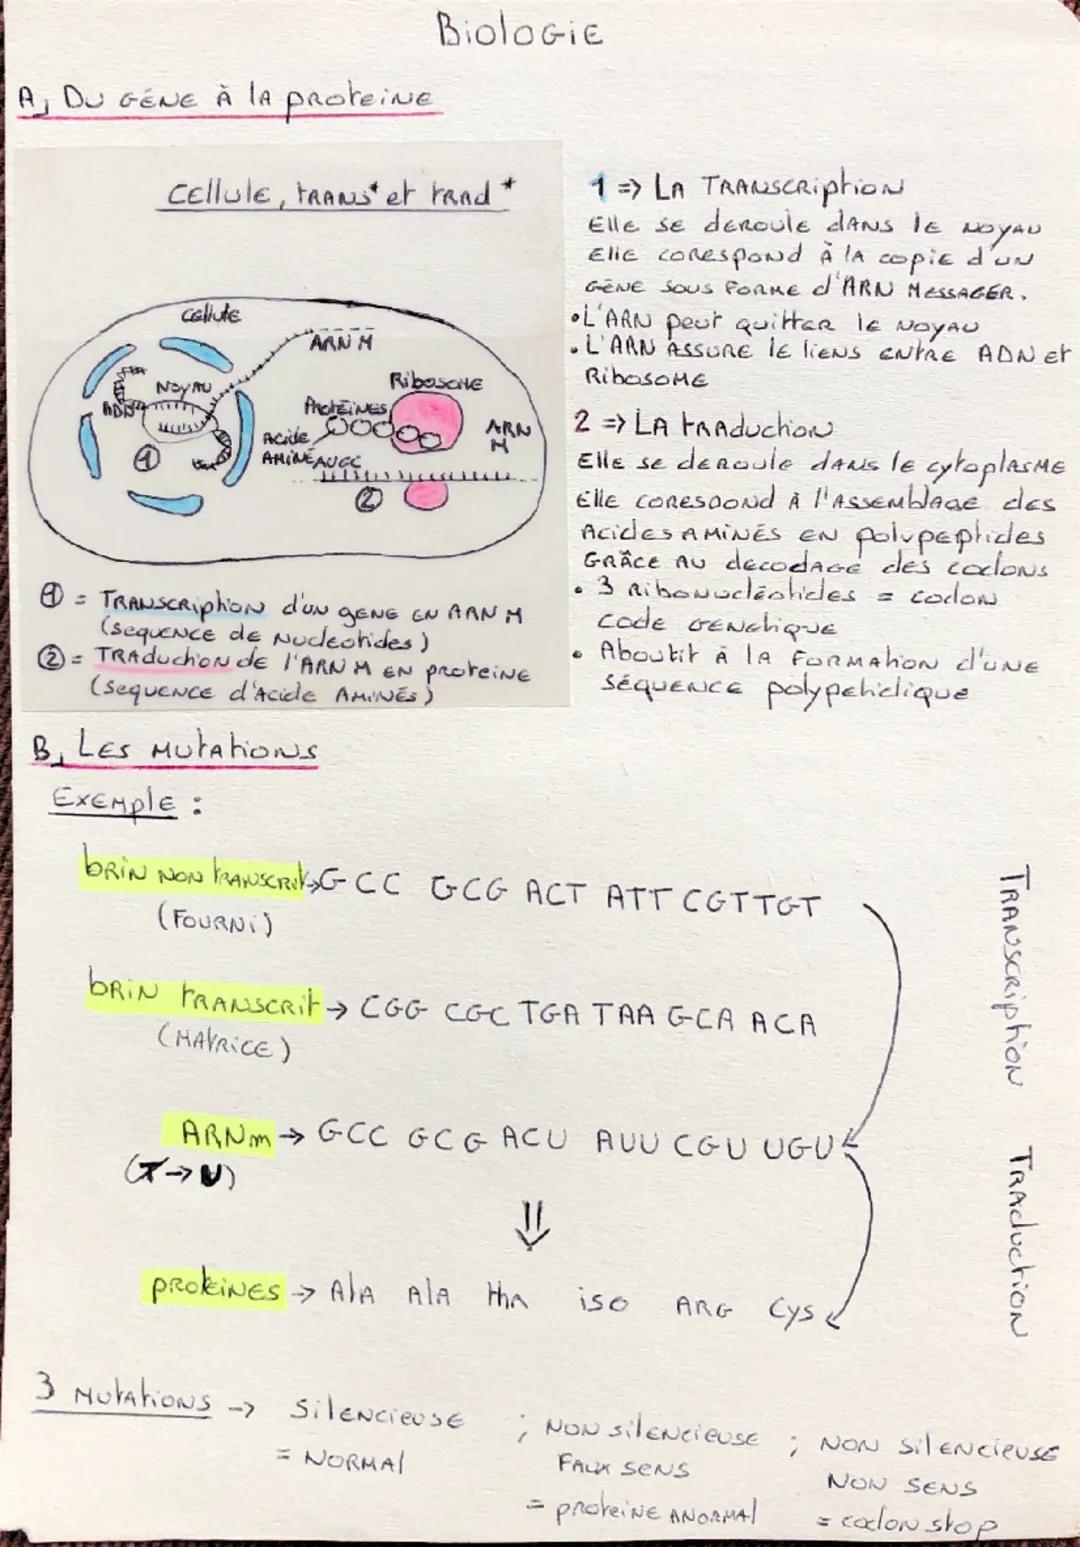 Biologie
A, Du gène à la proteine
Cellule, trans* et trad*
cellule
ARN M
Noyau
ADN
Ribosome
Protéines
Acide
Aminé
AUGC
ARN
M
1
2
1 = Transcription d'un gene en ARN M
(sequence de nucleotides)
2 = Traduction de l'ARN M en proteine
(sequence d'acide aminés)
1 => La Transcription
Elle se deroule dans le noyau
Elle corespond à la copie d'un
gène sous forme d'ARN messager.
• L'ARN peut quitter le noyau
• L'ARN assure le liens entre ADN et
Ribosome
2 => La traduction
Elle se deroule dans le cytoplasme
Elle corespond à l'assemblage des
Acides aminés en polypeptides
grâce au decodage des codons
• 3 Ribonucléotides = codon
code genetique
• Aboutit à la formation d'une
séquence polypetidique
B, Les mutations
Exemple :
brin non transcrit → GCC GCG ACT ATT CGT TGT
(Fourni)
brin transcrit → CGG CGC TGA TAA GCA ACA
(Matrice)
ARNm → GCC GCG ACU AUU CGU UGU
(T → U)
⇓
proteines → Ala Ala thr iso Arg Cys
Transcription
Traduction
3 mutations → Silencieuse ; non silencieuse ; non silencieuse
= normal
faux sens
non sens
= proteine anormal
= codon stop